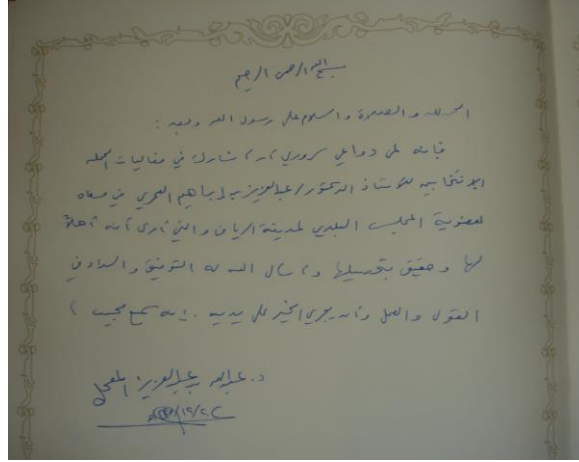 بسم الله الرحمن الرحيم
الحمد لله والصلاة والسلام على رسول الله وبعد :
فإنه لمن دواعي سروري أن أشارك في فعاليات الحملة
الانتخابية للأستاذ الدكتور / عبدالعزيز بن إبراهيم العمري في مسعاه
لعضوية المجلس البلدي لمدينة الرياض والتي أرى أنه أهلاً
لها وحقيق بتحصيلها وأسأل الله له التوفيق والسداد في
القول والعمل وأن يجري الخير على يديه . إنه سميع مجيب ،
د. عبدالله بن عبدالعزيز